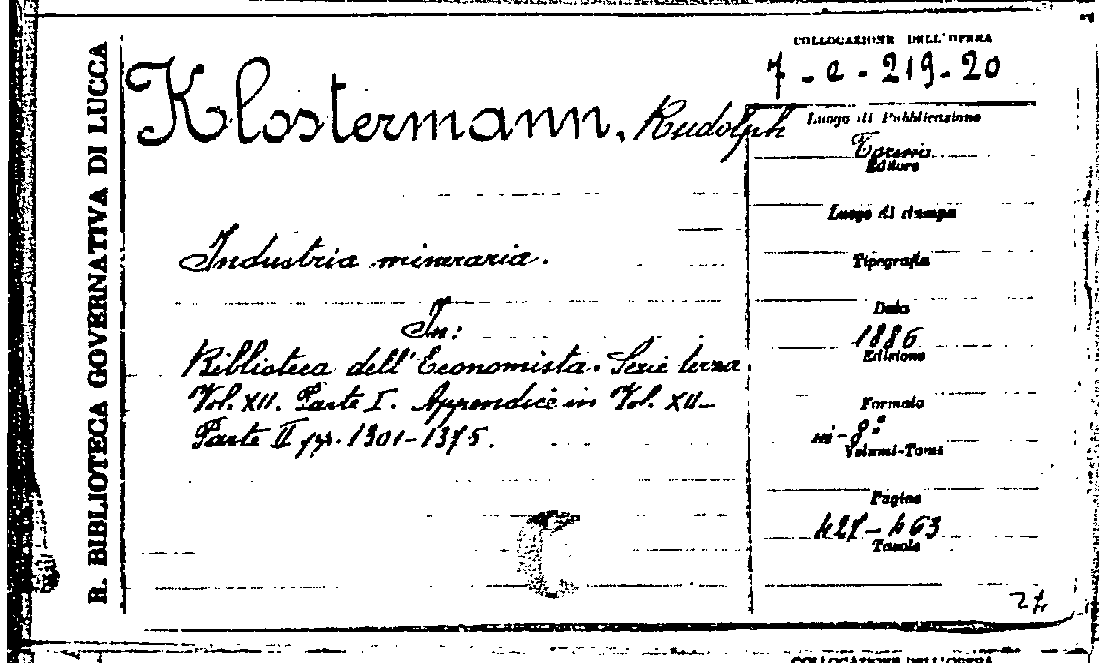 R. BIBLIOTECA GOVERNATIVA DI LUCCA
Klostermann, Rudolph
Industria mineraria.
In:
Biblioteca dell'Economista. Serie terza
Vol. XII. Parte I. Appendice in Vol. XII-
Parte II pp. 1301-1375.
C
COLLOCAZIONE DELL'OPERA
7-e-219-20
Luogo di Pubblicazione
Torino
Editore
Luogo di stampa
Tipografia
Data
1886
Edizione
Formato
in-8°
Volumi-Tomi
Pagine
427-463
Tavole
COLLOCAZIONE DELL'OPERA